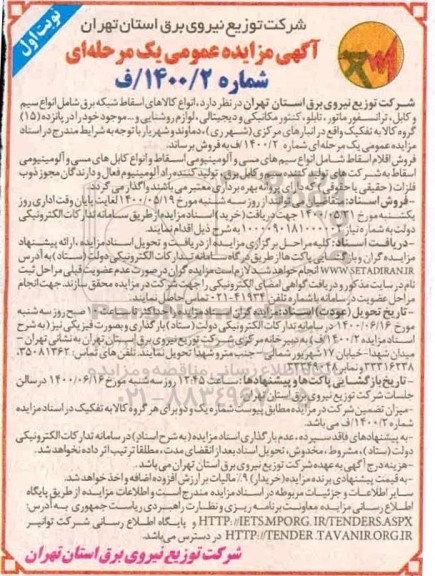 نوبت اول
شرکت توزیع نیروی برق استان تهران
آگهی مزایده عمومی یک مرحله‌ای
شماره ۱۴۰۰/۲/ف
شرکت توزیع نیروی برق استان تهران در نظر دارد، انواع کالاهای اسقاط شبکه برق شامل انواع سیم
و کابل، ترانسفورماتور، تابلو، کنتور مکانیکی و دیجیتالی، لوازم روشنایی و... موجود خود را در پانزده (۱۵)
گروه کالا به تفکیک واقع در انبارهای مرکزی (شهرری)، دماوند و شهریار با توجه به شرایط مندرج در اسناد
مزایده عمومی یک مرحله‌ای شماره ۱۴۰۰/۲/ف به فروش برساند.
فروش اقلام اسقاط شامل انواع سیم های مسی و آلومینیومی اسقاط و انواع کابل های مسی و آلومینیومی
اسقاط به شرکت های تولید کننده سیم و کابل برق، تولید کننده راد آلومینیوم فعال و دارندگان مجوز ذوب
فلزات (حقیقی یا حقوقی) که دارای پروانه بهره برداری معتبر می باشند واگذار می گردد.
-فروش اسناد: متقاضیان می‌توانند از روز سه شنبه مورخ ۱۴۰۰/۰۵/۱۹ لغایت پایان وقت اداری روز
یکشنبه مورخ جهت دریافت (خرید) اسناد مزایده از طریق سامانه تدارکات الکترونیکی
دولت به شماره نیاز به شرح ذیل اقدام نمایند.
-دریافت اسناد: کلیه مراحل برگزاری مزایده از دریافت و تحویل اسناد مزایده، ارائه پیشنهاد
مزایده گران و بازگشایی پاکت‌ها از طریق درگاه سامانه تدارکات الکترونیکی دولت (ستاد) به آدرس
WWW.SETADIRAN.IR انجام خواهد شد. لازم است مزایده گران در صورت عدم عضویت قبلی مراحل ثبت
نام در سایت مذکور و دریافت گواهی امضای الکترونیکی را جهت شرکت در مزایده محقق سازند. جهت انجام
مراحل عضویت در سامانه با شماره تلفن ۴۱۹۳۴-۰۲۱ تماس حاصل نمایند.
-تاریخ تحویل (عودت) اسناد: صبح روز سه شنبه
مورخ ۱۴۰۰/۰۶/۱۶ در سامانه تدارکات الکترونیکی دولت (ستاد) بارگذاری و بصورت فیزیکی نیز (به شرح
اسناد مزایده ۱۴۰۰/۲/ف) به دبیرخانه مرکزی شرکت توزیع نیروی برق استان تهران به نشانی تهران -
میدان شهدا - خیابان ۱۷ شهریور شمالی - جنب مترو شهدا تحویل نمایند. تلفن های تماس: ۳۵۰۸۱۳۶۲،
۳۳۳۱۶۲۳۸ و نمابر
-تاریخ بازگشایی پاکت ها و پیشنهادها: ساعت ۱۲:۴۵ روز سه شنبه مورخ ۱۴۰۰/۰۶/۱۶ در سالن
جلسات شرکت توزیع نیروی برق استان تهران
-میزان تضمین شرکت در مزایده مطابق پیوست شماره یک و دو برای هر گروه کالا به تفکیک در اسناد مزایده
شماره ۱۴۰۰/۲/ف می باشد.
-به پیشنهادهای فاقد سپرده، عدم بارگذاری اسناد مزایده (به شرح اسناد) در سامانه تدارکات الکترونیکی
دولت (ستاد)، مشروط، مخدوش، تحویل اسناد بعد از انقضای مدت، مطلقا ترتیب اثر داده نخواهد شد.
-هزینه درج آگهی به عهده شرکت توزیع نیروی برق استان تهران می باشد.
-به قیمت پیشنهادی برنده مزایده (خریدار) ۹٪ مالیات بر ارزش افزوده اضافه و اخذ خواهد شد.
سایر اطلاعات و جزئیات مربوطه در اسناد مزایده مندرج است و اطلاعات مزایده از طریق پایگاه
اطلاع رسانی مزایده معاونت برنامه ریزی و نظارت راهبردی ریاست جمهوری به آدرس:
HTTP://IETS.MPORG.IR/TENDERS.ASPX و پایگاه اطلاع رسانی شرکت توانیر
HTTP://TENDER.TAVANIR.ORG.IR در دسترس می‌باشد.
شرکت توزیع نیروی برق استان تهران